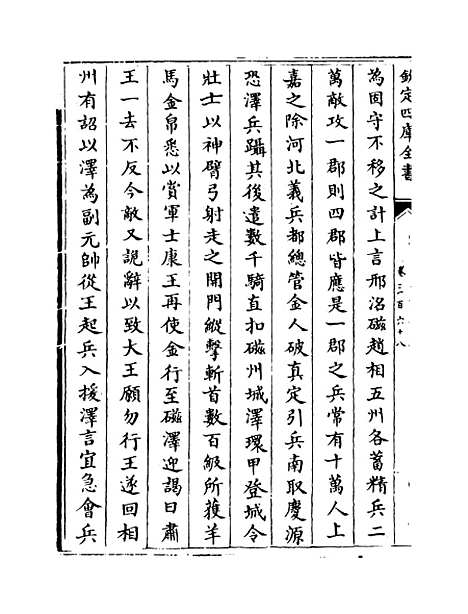 欽定四庫全書
卷三百六十八
為固守不移之計上言邢洺磁趙相五州各蓄精兵二
萬敵攻一郡則四郡皆應是一郡之兵常有十萬人上
嘉之除河北義兵都總管金人破真定引兵南取慶源
恐澤兵躡其後遣數千騎直扣磁州城澤環甲登城令
壯士以神臂弓射走之開門縱擊斬首數百級所獲羊
馬金帛悉以賞軍士康王再使金行至磁澤迎謁曰肅
王一去不反今敵又詭辭以致大王願勿行王遂回相
州有詔以澤為副元帥從王起兵入援澤言宜急會兵